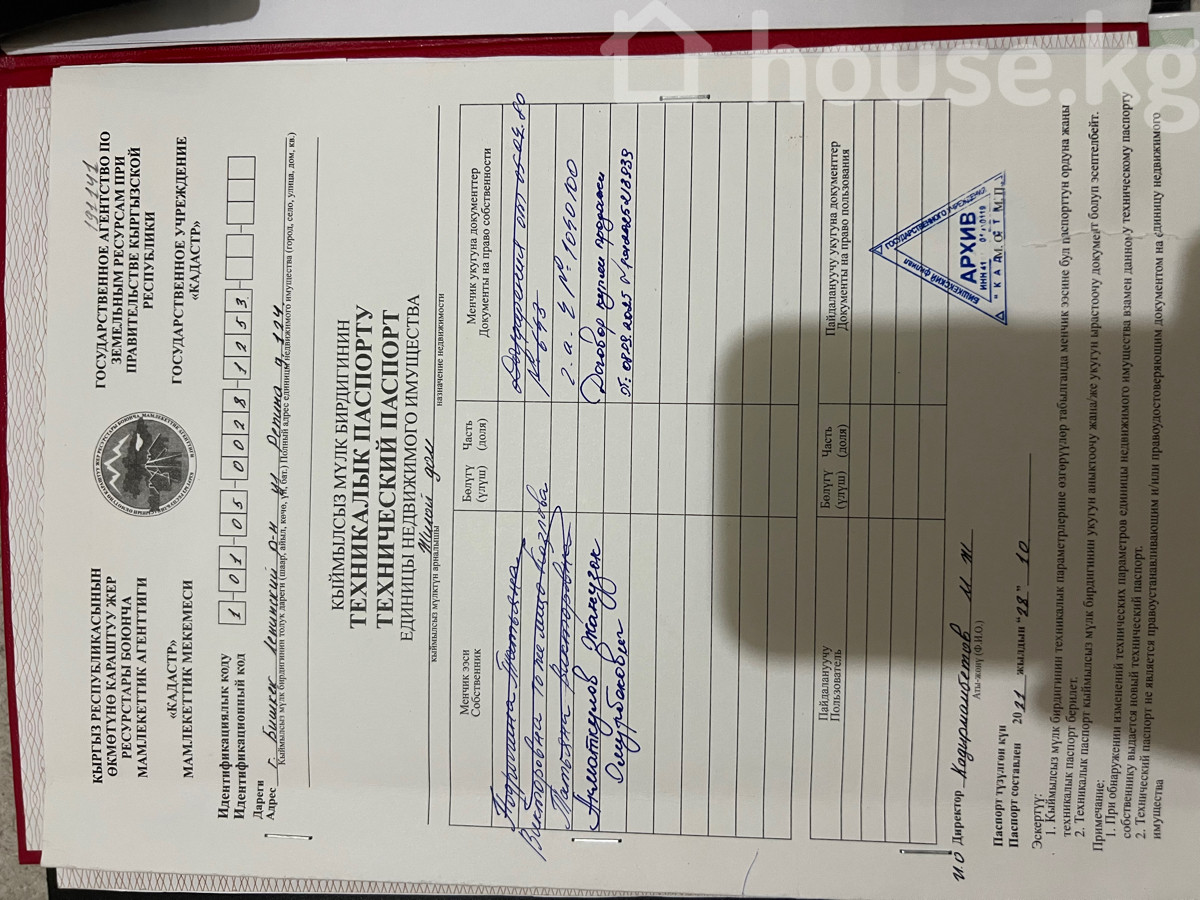 house.kg
191141
КЫРГЫЗ РЕСПУБЛИКАСЫНЫН
ӨКМӨТҮНӨ КАРАШТУУ ЖЕР
РЕСУРСТАРЫ БОЮНЧА
МАМЛЕКЕТТИК АГЕНТТИГИ
«КАДАСТР»
МАМЛЕКЕТТИК МЕКЕМЕСИ
ГОСУДАРСТВЕННОЕ АГЕНТСТВО ПО
ЗЕМЕЛЬНЫМ РЕСУРСАМ ПРИ
ПРАВИТЕЛЬСТВЕ КЫРГЫЗСКОЙ
РЕСПУБЛИКИ
ГОСУДАРСТВЕННОЕ УЧРЕЖДЕНИЕ
«КАДАСТР»
Идентификациялык коду
Идентификационный код
1-01-05-0028-1253
Дареги
Адрес г. Бишкек Ленинский р-н ул Репина д. 124
Кыймылсыз мүлк бирдигинин толук дареги (шаар, айыл, көчө, үй, бат.) Полный адрес единицы недвижимого имущества (город, село, улица, дом, кв.)
КЫЙМЫЛСЫЗ МҮЛК БИРДИГИНИН
ТЕХНИКАЛЫК ПАСПОРТУ
ТЕХНИЧЕСКИЙ ПАСПОРТ
ЕДИНИЦЫ НЕДВИЖИМОГО ИМУЩЕСТВА
Жилой дом
кыймылсыз мүлктүн арналышы назначение недвижимости
Менчик ээси
Собственник
Бөлүгү (үлүш)
Часть (доля)
Менчик укугуна документтер
Документы на право собственности
Татьяна
Викторовна то же лицо
Татьяна Викторовна
Акматкулов Жанузак
Омурбакович
от 05.02.80
№ 693
г.а. с № 1050100
Договор купли продажи
от 08.09.2025
Пайдалануучу
Пользователь
Бөлүгү (үлүш)
Часть (доля)
Пайдалануучу укугуна документтер
Документы на право пользования
БИШКЕКСКИЙ ФИЛИАЛ
ГОСУДАРСТВЕННОГО УЧРЕЖДЕНИЯ
АРХИВ
"КАДАСТР"
И.О Директор Кадирмамбетов М Ж
Аты-жөнү (Ф.И.О.)
Паспорт түзүлгөн күн
Паспорт составлен 2021 жылдын "28" 10
Эскертүү:
1. Кыймылсыз мүлк бирдигинин техникалык параметрлерине өзгөрүүлөр табылганда менчик ээсине бул паспорттун ордуна жаны
техникалык паспорт берилет.
2. Техникалык паспорт кыймылсыз мүлк бирдигинин укугун аныктоочу жана/же укугун ырастоочу документ болуп эсептелбейт.
Примечание:
1. При обнаружении изменений технических параметров единицы недвижимого имущества взамен данному техническому паспорту
собственнику выдается новый технический паспорт.
2. Технический паспорт не является правоустанавливающим и/или правоудостоверяющим документом на единицу недвижимого
имущества